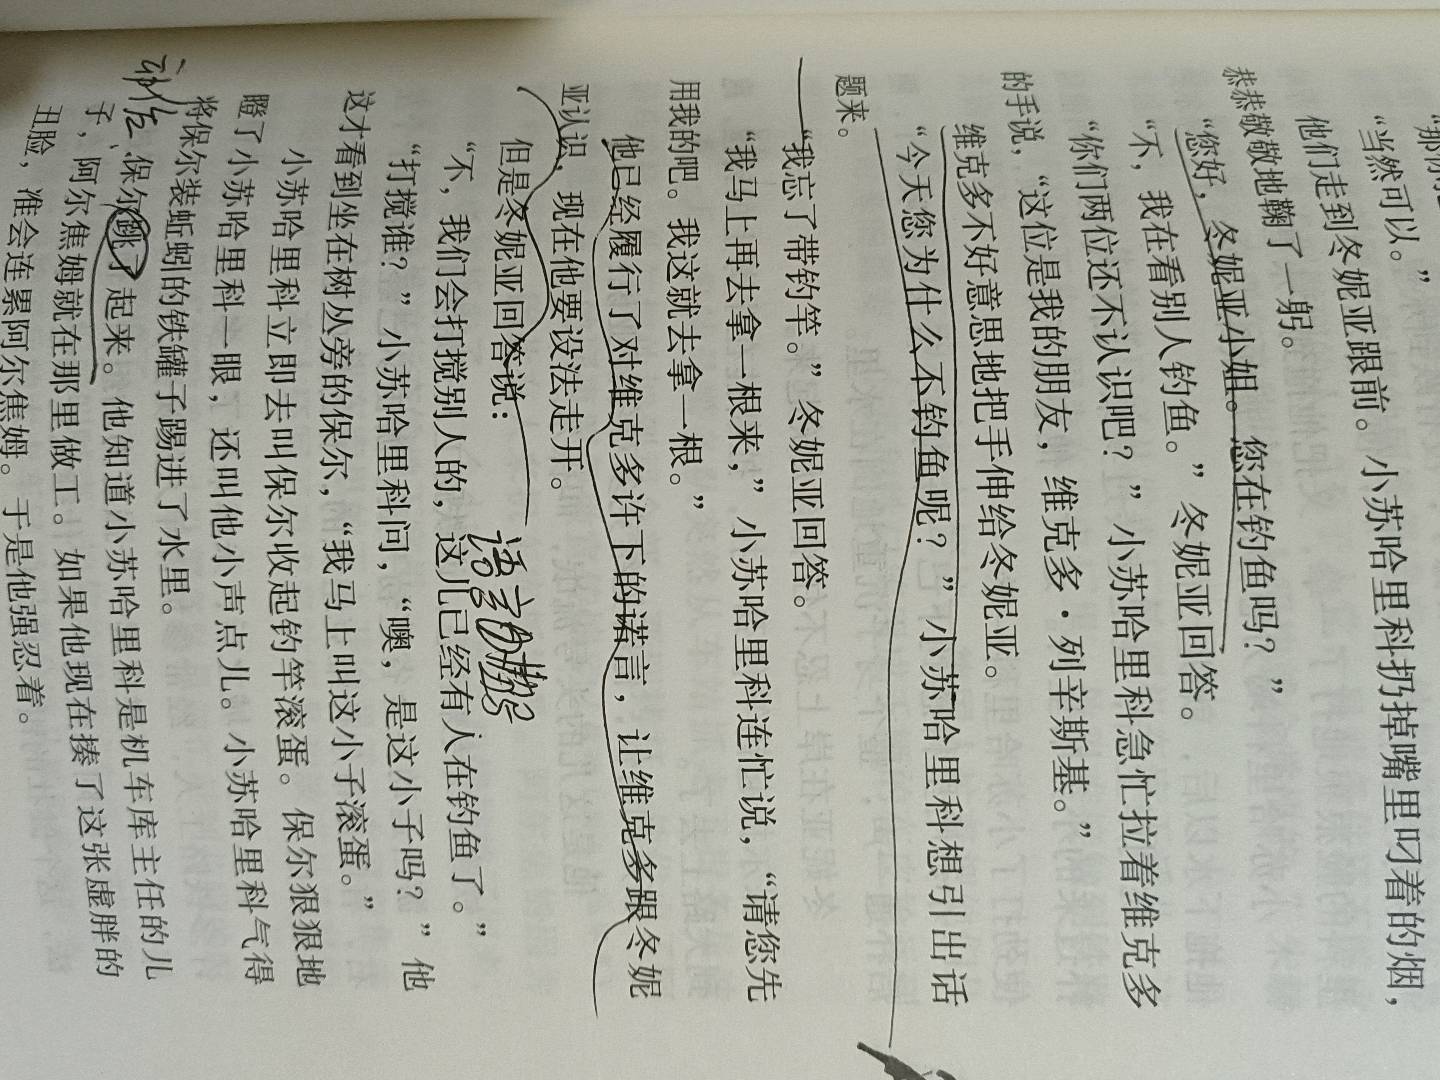 “当然可以。”
他们走到冬妮亚跟前。小苏哈里科扔掉嘴里叼着的烟，
恭恭敬敬地鞠了一躬。
“您好，冬妮亚小姐。您在钓鱼吗？”
“不，我在看别人钓鱼。”冬妮亚回答。
“你们两位还不认识吧？”小苏哈里科急忙拉着维克多
的手说，“这位是我的朋友，维克多·列辛斯基。”
维克多不好意思地把手伸给冬妮亚。
“今天您为什么不钓鱼呢？”小苏哈里科想引出话
题来。
“我忘了带钓竿。”冬妮亚回答。
“我马上再去拿一根来，”小苏哈里科连忙说，“请您先
用我的吧。我这就去拿一根。”
他已经履行了对维克多许下的诺言，让维克多跟冬妮
亚认识，现在他要设法走开。
但是冬妮亚回答说：
语言
“不，我们会打搅别人的，这儿已经有人在钓鱼了。”
“打搅谁？”小苏哈里科问，“噢，是这小子吗？”他
这才看到坐在树丛旁的保尔，“我马上叫这小子滚蛋。”
小苏哈里科立即去叫保尔收起钓竿滚蛋。保尔狠狠地
瞪了小苏哈里科一眼，还叫他小声点儿。小苏哈里科气得
将保尔装蚯蚓的铁罐子踢进了水里。
保尔跳了起来。他知道小苏哈里科是机车库主任的儿
子，阿尔焦姆就在那里做工。如果他现在揍了这张虚胖的
丑脸，准会连累阿尔焦姆。于是他强忍着。